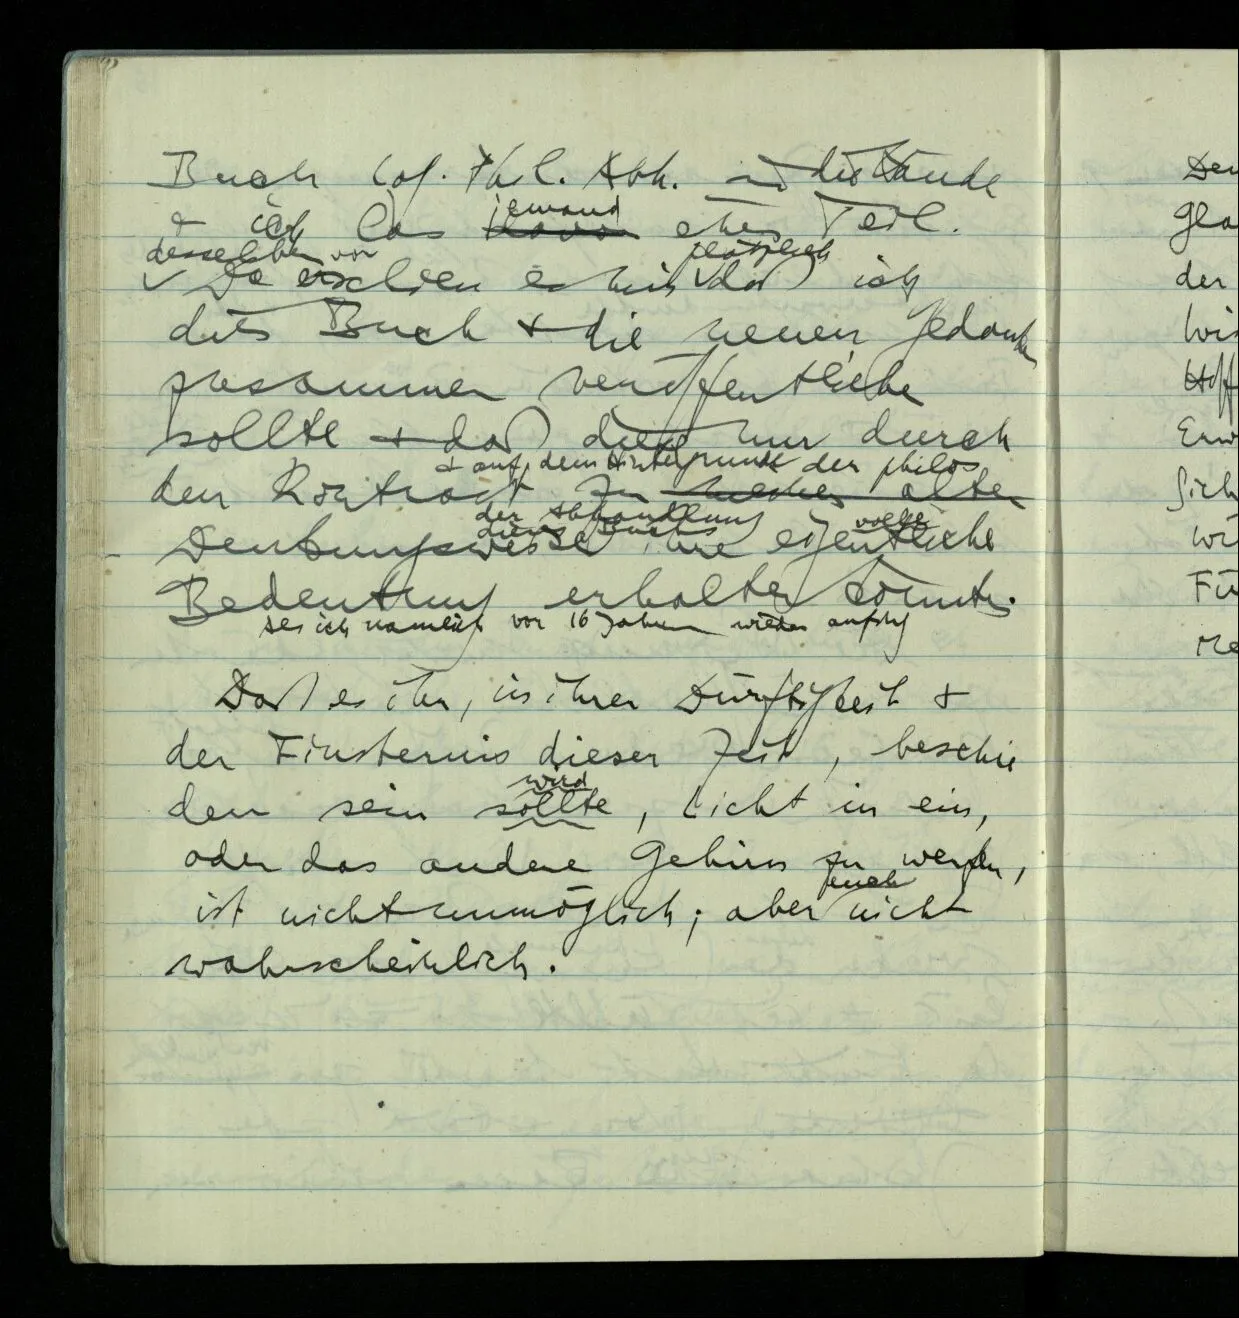 Buch Log. Phil. Abh. in die Hände
jemand
& ich las davon einen Teil.
desselben vor
Da erschien es mir daß ich
plötzlich
dies Buch & die neuen Gedanken
zusammen veröffentlichen
sollte & daß diese nur durch
& auf dem Hintergrund der philos
den Kontrast zu meiner alten
der Abhandlung
dieses Buchs
volle
Denkungsweise ihre eigentliche
Bedeutung erhalten könnten.
seit ich nämlich vor 16 Jahren wieder anfing
Daß es ihr, in ihrer Dürftigkeit &
der Finsternis dieser Zeit, beschie
wird
den sein sollte, Licht in ein,
oder das andere Gehirn zu werfen,
auch
ist nicht unmöglich; aber nicht
wahrscheinlich.
Den
der
Erw
Sich
Fü